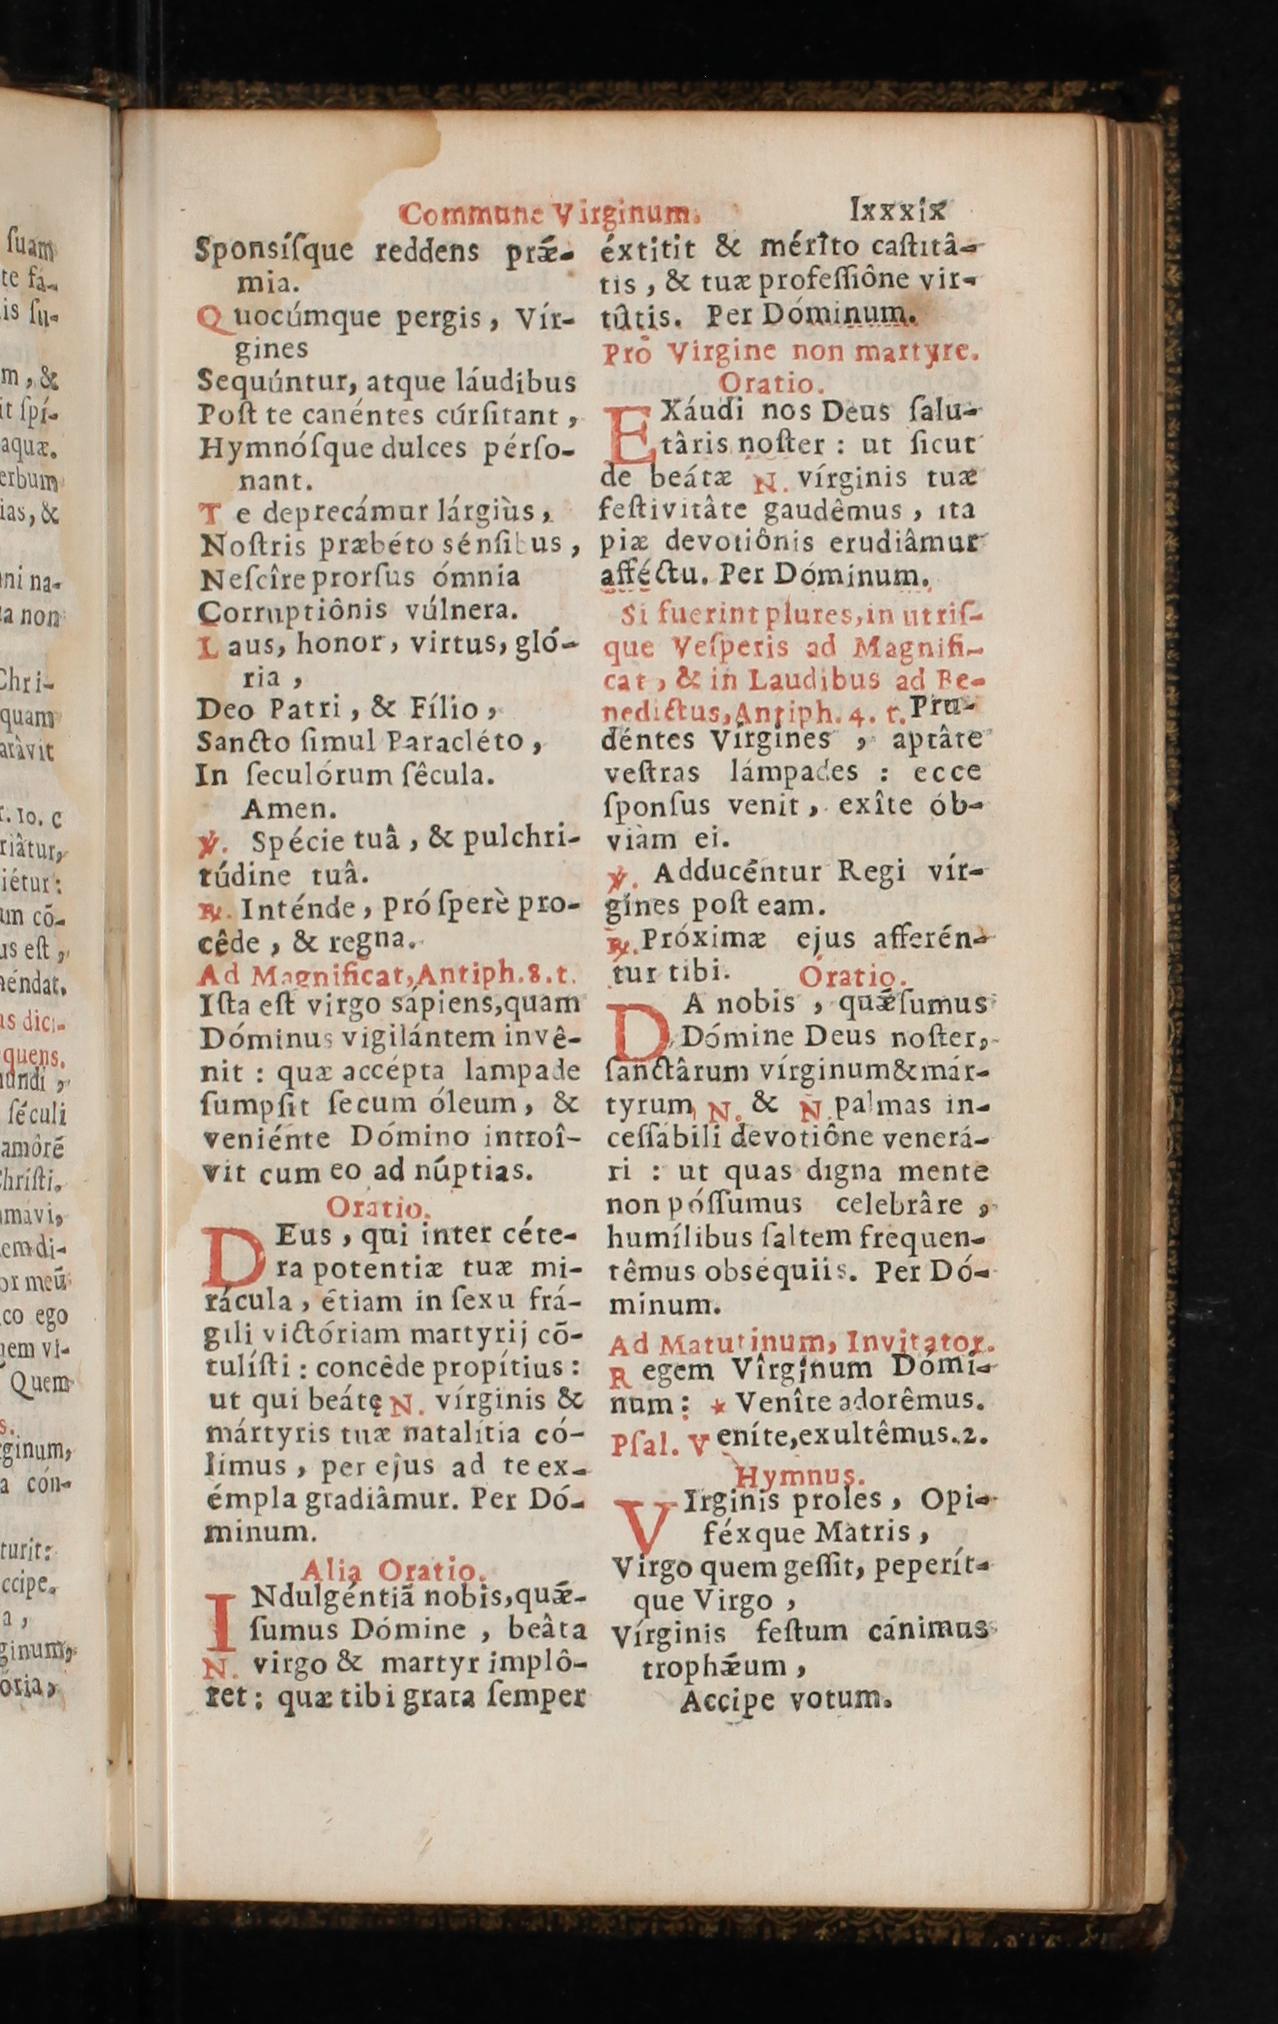 Commune Virginum. lxxxix
Sponsíſque reddens prǽ-
mia.
Quocúmque pergis, Vír-
gines
Sequúntur, atque láudibus
Poſt te canéntes cúrſitant,
Hymnóſque dulces pérſo-
nant.
Te deprecámur lárgiùs,
Noſtris præbéto sénſibus,
Neſcîre prorſus ómnia
Corruptiônis vúlnera.
Laus, honor, virtus, gló-
ria,
Deo Patri, & Fílio,
Sancto ſimul Paracléto,
In ſeculórum ſêcula.
Amen.
℣. Spécie tuâ, & pulchri-
túdine tuâ.
℟. Inténde, próſperè pro-
cêde, & regna.
Ad Magnificat, Antiph. 8. t.
Iſta eſt virgo sápiens, quam
Dóminus vigilántem invê-
nit : quæ accépta lampade
ſumpſit ſecum óleum, &
veniénte Dómino introî-
vit cum eo ad núptias.
Oratio.
DEus, qui inter céte-
ra potentiæ tuæ mi-
rácula, étiam in ſexu frá-
gili victóriam martyrij cō-
tulíſti : concêde propítius :
ut qui beátę N. vírginis &
mártyris tuæ natalítia có-
limus, per ejus ad te ex-
émpla gradiâmur. Per Dó-
minum.
Alia Oratio.
INdulgéntiā nobis, quǽ-
ſumus Dómine, beâta
N. virgo & martyr implô-
ret; quæ tibi grata ſemper
éxtitit & mérito caſtitâ-
tis, & tuæ profeſſiône vir-
tûtis. Per Dóminum.
Pro Virgine non martyre.
Oratio.
EXáudi nos Deus ſalu-
târis noſter : ut ſicut
de beátæ N. vírginis tuæ
feſtivitâte gaudêmus, ita
piæ devotiônis erudiâmur
afféctu. Per Dóminum.
Si fuerint plures, in utriſ-
que Veſperis ad Magnifi-
cat, & in Laudibus ad Be-
nedictus, Antiph. 4. t. Pru-
déntes Virgines, aptâte
veſtras lámpades : ecce
ſponſus venit, exîte ób-
viàm ei.
℣. Adducéntur Regi vír-
gines poſt eam.
℟. Próximæ ejus afferén-
tur tibi. Oratio.
DA nobis, quǽſumus
Dómine Deus noſter,
ſanctârum vírginum & már-
tyrum N. & N. palmas in-
ceſſábili devotiône venerá-
ri : ut quas digna mente
non póſſumus celebrâre,
humílibus ſaltem frequen-
têmus obséquiis. Per Dó-
minum.
Ad Matutinum, Invitator.
Regem Vîrginum Dómi-
num : * Venîte adorêmus.
Pſal. Veníte, exultêmus. 2.
Hymnus.
VIrginis proles, Opi-
féxque Matris,
Virgo quem geſſit, peperít-
que Virgo,
Vírginis feſtum cánimus
trophǽum,
Accipe votum.